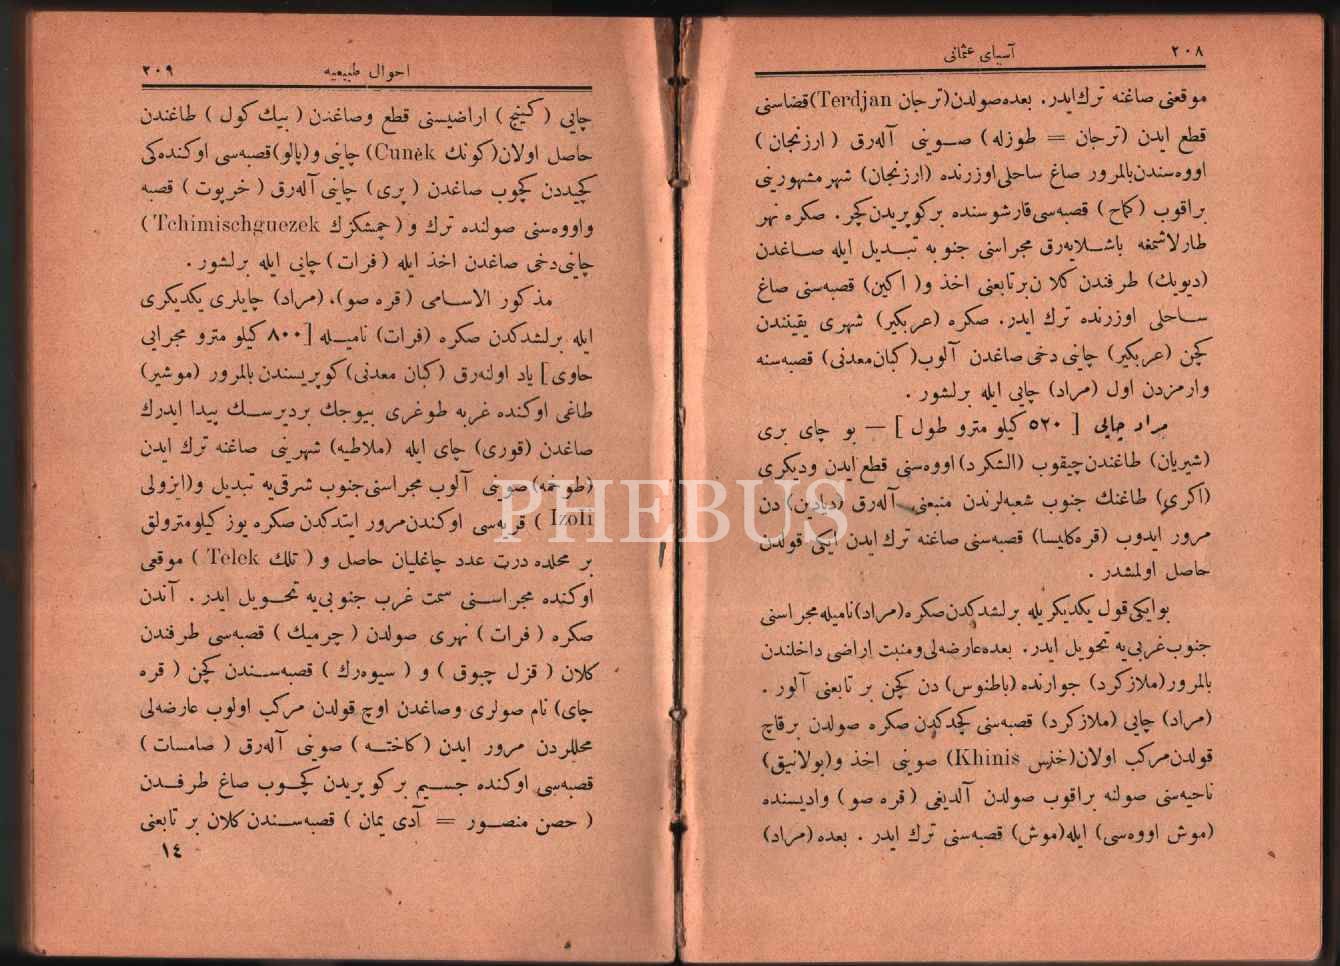 ٢٠٨
آسیای عثمانی
موقعنی صاغنه ترك ایدر. بعده صولدن (ترجان Terdjan) قضاسنی
قطع ایدن (ترجان = طوزله) صوینی آله‌رق (ارزنجان)
اووه‌سندن بالمرور صاغ ساحلی اوزرنده (ارزنجان) شهر مشهورینی
براقوب (كماح) قصبه‌سی قارشوسنده بر كوپریدن كچر. صكره نهر
طارلاشمغه باشلایه‌رق مجراسنی جنوبه تبدیل ایله صاغدن
(دیویك) طرفندن كلان بر تابعنی اخذ و (اكین) قصبه‌سنی صاغ
ساحلی اوزرنده ترك ایدر. صكره (عربكیر) شهری یقینندن
كچن (عربكیر) چاینی دخی صاغدن آلوب (كبان معدنی) قصبه‌سنه
وارمزدن اول (مراد) چایی ایله برلشور.
مراد چایی [ ٥٢٠ كیلو مترو طول ] — بو چای بری
(شیریان) طاغندن چیقوب (الشكرد) اووه‌سنی قطع ایدن ودیكری
(اكری) طاغنك جنوب شعبه‌لرندن منبعنی آله‌رق (دیادین) دن
مرور ایدوب (قره‌كلیسا) قصبه‌سنی صاغنه ترك ایدن ایكی قولدن
حاصل اولمشدر.
بو ایكی قول یكدیكریله برلشدكدن صكره (مراد) نامیله مجراسنی
جنوب غربی‌یه تحویل ایدر. بعده عارضه‌لی ومنبت اراضی داخلندن
بالمرور (ملازكرد) جوارنده (باطنوس) دن كچن بر تابعنی آلور.
(مراد) چایی (ملازكرد) قصبه‌سنی كچدكدن صكره صولدن برقاچ
قولدن مركب اولان (خنس Khinis) صوینی اخذ و (بولانیق)
ناحیه‌سنی صولنه براقوب صولدن آلدیغی (قره صو) وادیسنده
(موش اووه‌سی) ایله (موش) قصبه‌سنی ترك ایدر. بعده (مراد)
احوال طبیعیه
٢٠٩
چایی (كینج) اراضیسنی قطع وصاغدن (بیك كول) طاغندن
حاصل اولان (كونك Cunék) چاینی و (پالو) قصبه‌سی اوكنده‌كی
كچیددن كچوب صاغدن (پری) چاینی آله‌رق (خرپوت) قصبه
واووه‌سنی صولنده ترك و (چمشكزك Tchimischguezek)
چاینی دخی صاغدن اخذ ایله (فرات) چایی ایله برلشور.
مذكور الاسامی (قره صو)، (مراد) چایلری یكدیكری
ایله برلشدكدن صكره (فرات) نامیله [ ٨٠٠ كیلو مترو مجرایی
حاوی ] یاد اولنه‌رق (كبان معدنی) كوپریسندن بالمرور (موشیر)
طاغی اوكنده غربه طوغری بیوجك بر دیرسك پیدا ایدرك
صاغدن (قوری) چای ایله (ملاطیه) شهرینی صاغنه ترك ایدن
(طوخمه) صوینی آلوب مجراسنی جنوب شرقی‌یه تبدیل و (ایزولی
Izoli) قریه‌سی اوكندن مرور ایتدكدن صكره یوز كیلومترولق
بر محلده درت عدد چاغلیان حاصل و (تلك Telek) موقعی
اوكنده مجراسنی سمت غرب جنوبی‌یه تحویل ایدر. آندن
صكره (فرات) نهری صولدن (چرمیك) قصبه‌سی طرفندن
كلان (قزل چبوق) و (سیوه‌رك) قصبه‌سندن كچن (قره
چای) نام صولری وصاغدن اوچ قولدن مركب اولوب عارضه‌لی
محللردن مرور ایدن (كاخته) صوینی آله‌رق (صامسات)
قصبه‌سی اوكنده جسیم بر كوپریدن كچوب صاغ طرفدن
(حصن منصور = آدی یمان) قصبه‌سندن كلان بر تابعنی
١٤
PHEBUS